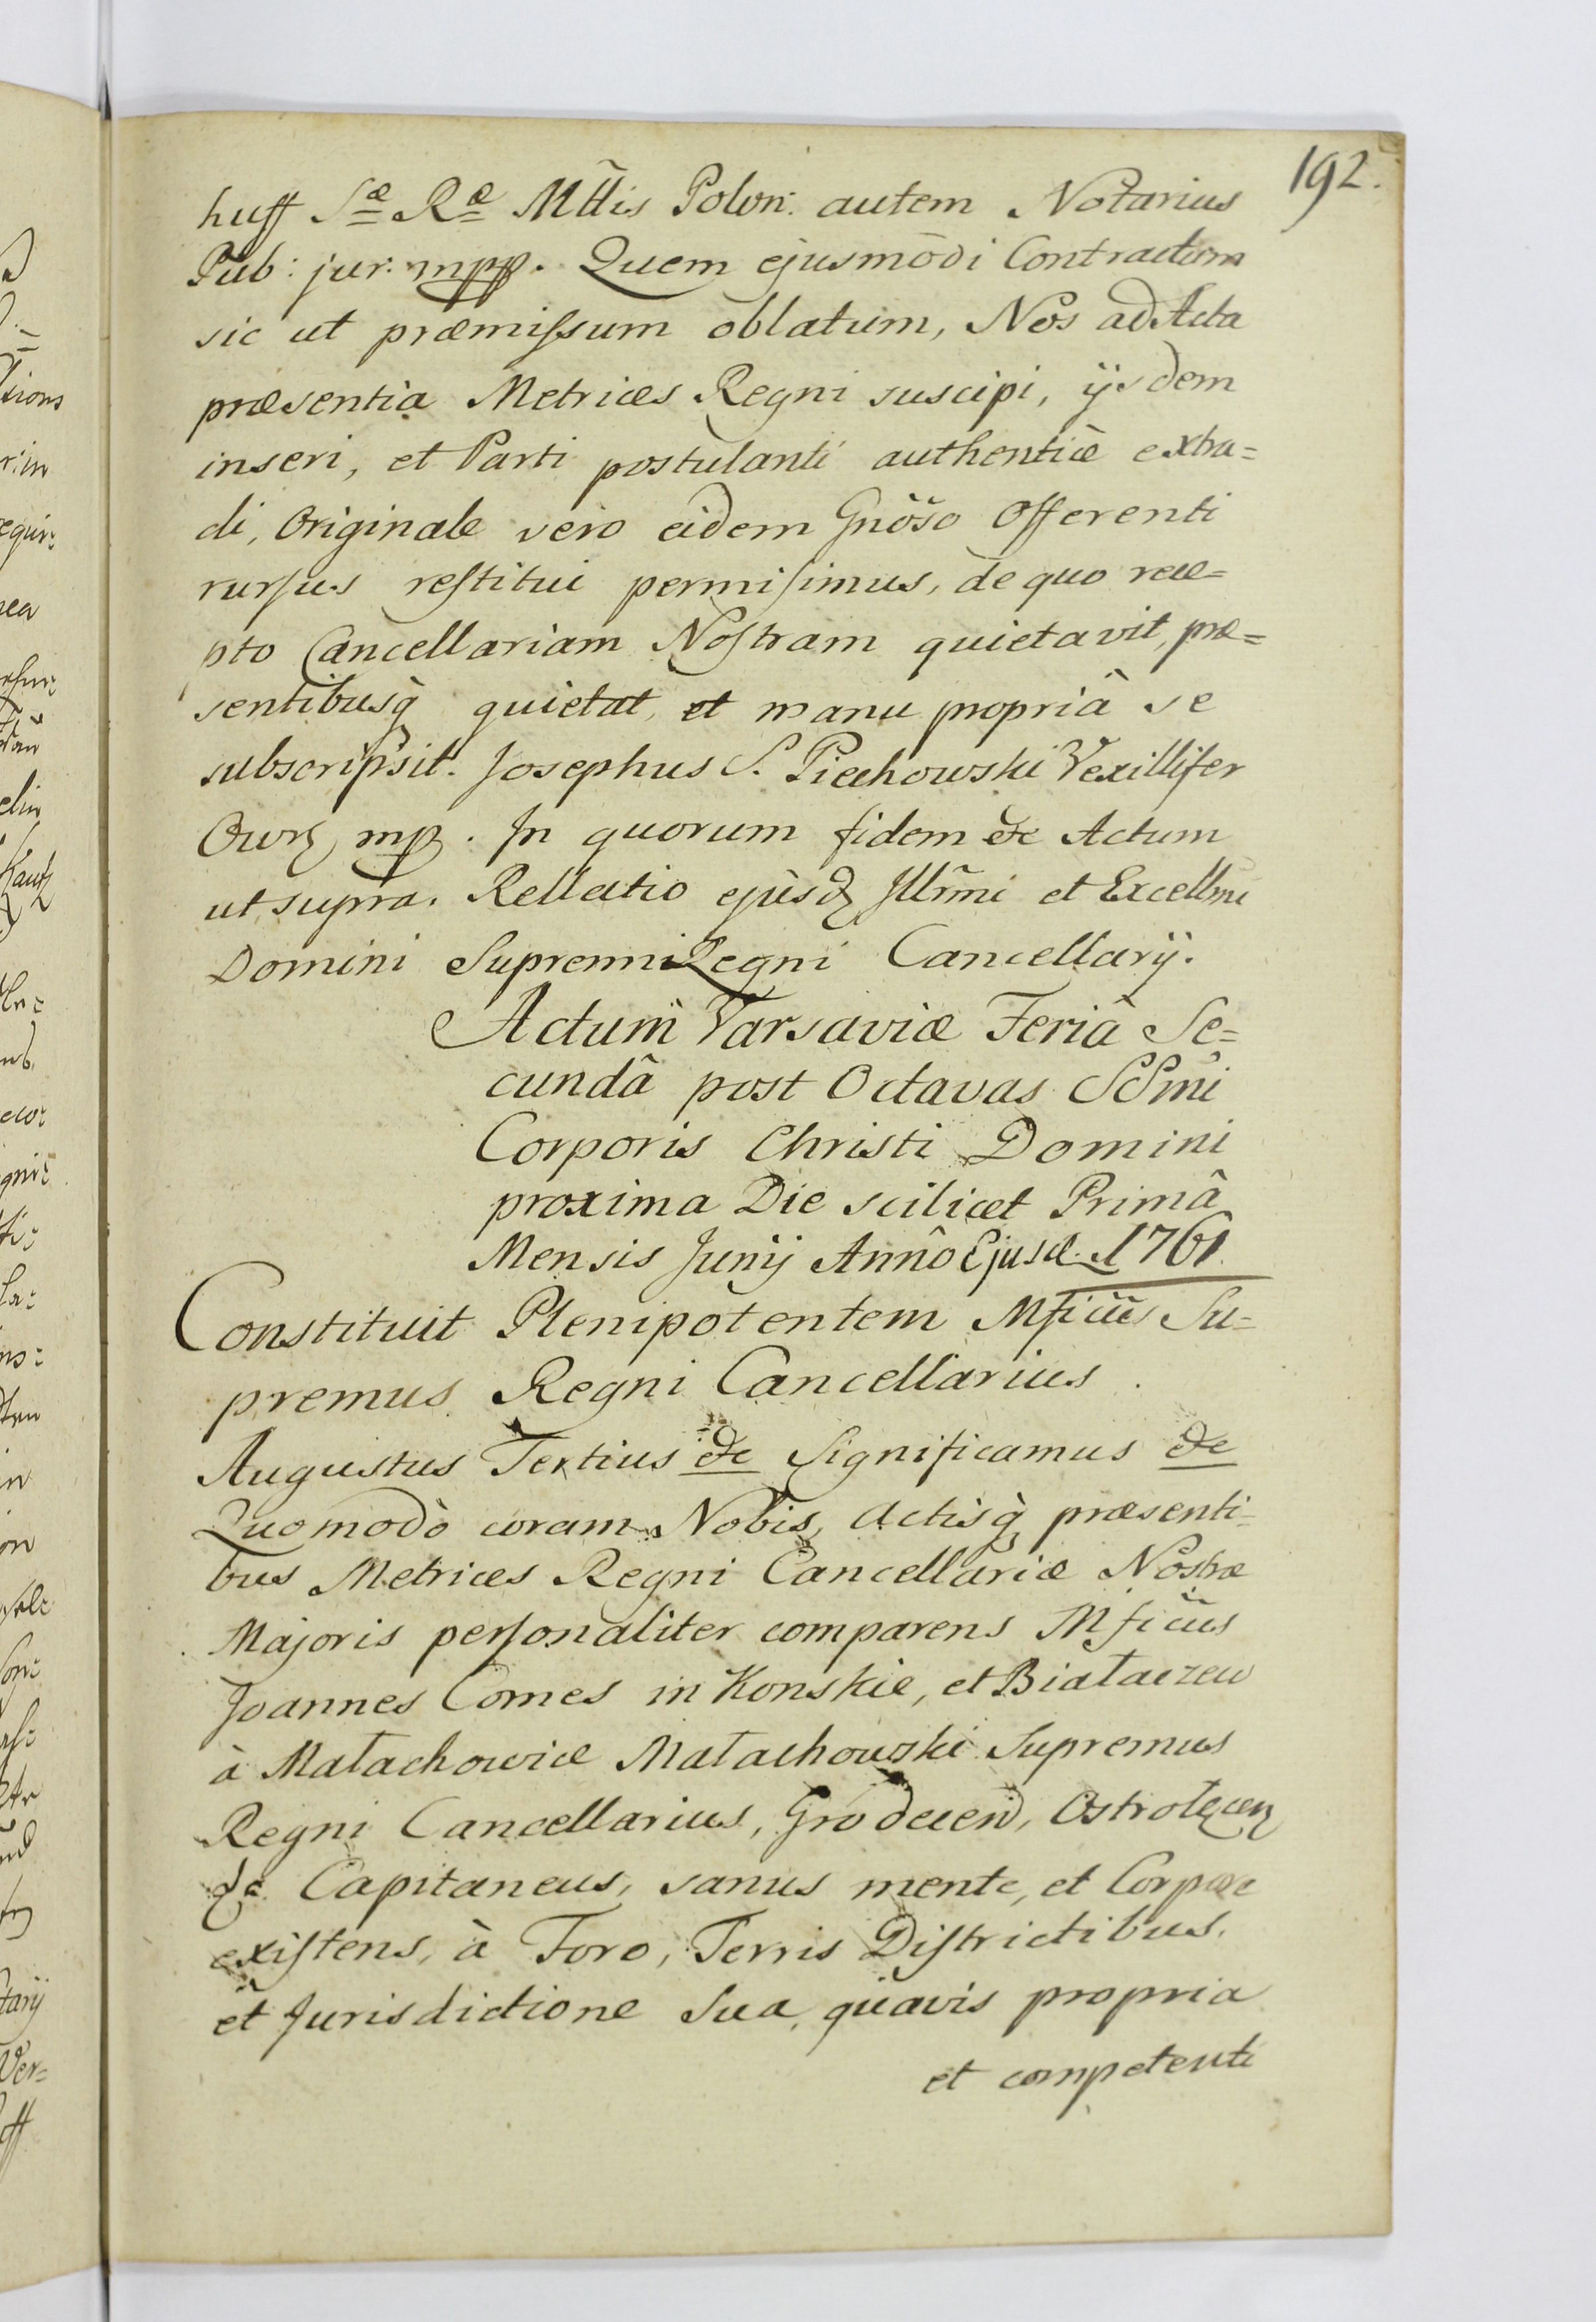 192.
huff Sæ Ræ Mttis Polon: autem Notarius
Pub: jur: mpp. Quem ejusmodi Contractum
sic ut præmissum oblatum, Nos ad Acta
præsentia Metrices Regni suscipi, ijsdem
inseri, et Parti postulanti authenticè extra=
di, Originale vero eidem Gnöso Offerenti
rursus restitui permisimus, de quo rece=
pto Cancellariam Nostram quietavit, præ=
sentibusq̀ quietat, et manu propriâ se
subscripsit. Josephus S. Piechowski Vexillifer
mp. In quorum fidem &c Actum
ut supra. Rellatio ejusd Illrmi et Excellmi
Domini Supremi Regni Cancellarij.
Actum Varsaviæ Feriâ Se=
cundâ post Octavas SSmi
Corporis Christi Domini
proxima Die scilicet Primâ
Mensis Junij Annô Ejusd. 1761.
Constituit Plenipotentem Mficus Su=
premus Regni Cancellarius.
Augustus Tertius &c Significamus &c
Quomodò coram Nobis, Actisq̀ præsenti=
bus Metrices Regni Cancellariæ Nostræ
Majoris personaliter comparens Mficus
Joannes Comes in Konskie, et Białaczew
à Małachowice Małachowski Supremus
Regni Cancellarius, Grodecen, Ostrołęcen
&c Capitaneus, sanus mente, et Corpore
existens, à Foro, Terris Districtibus.
et Jurisdictione Sua, quavis propria
et competenti